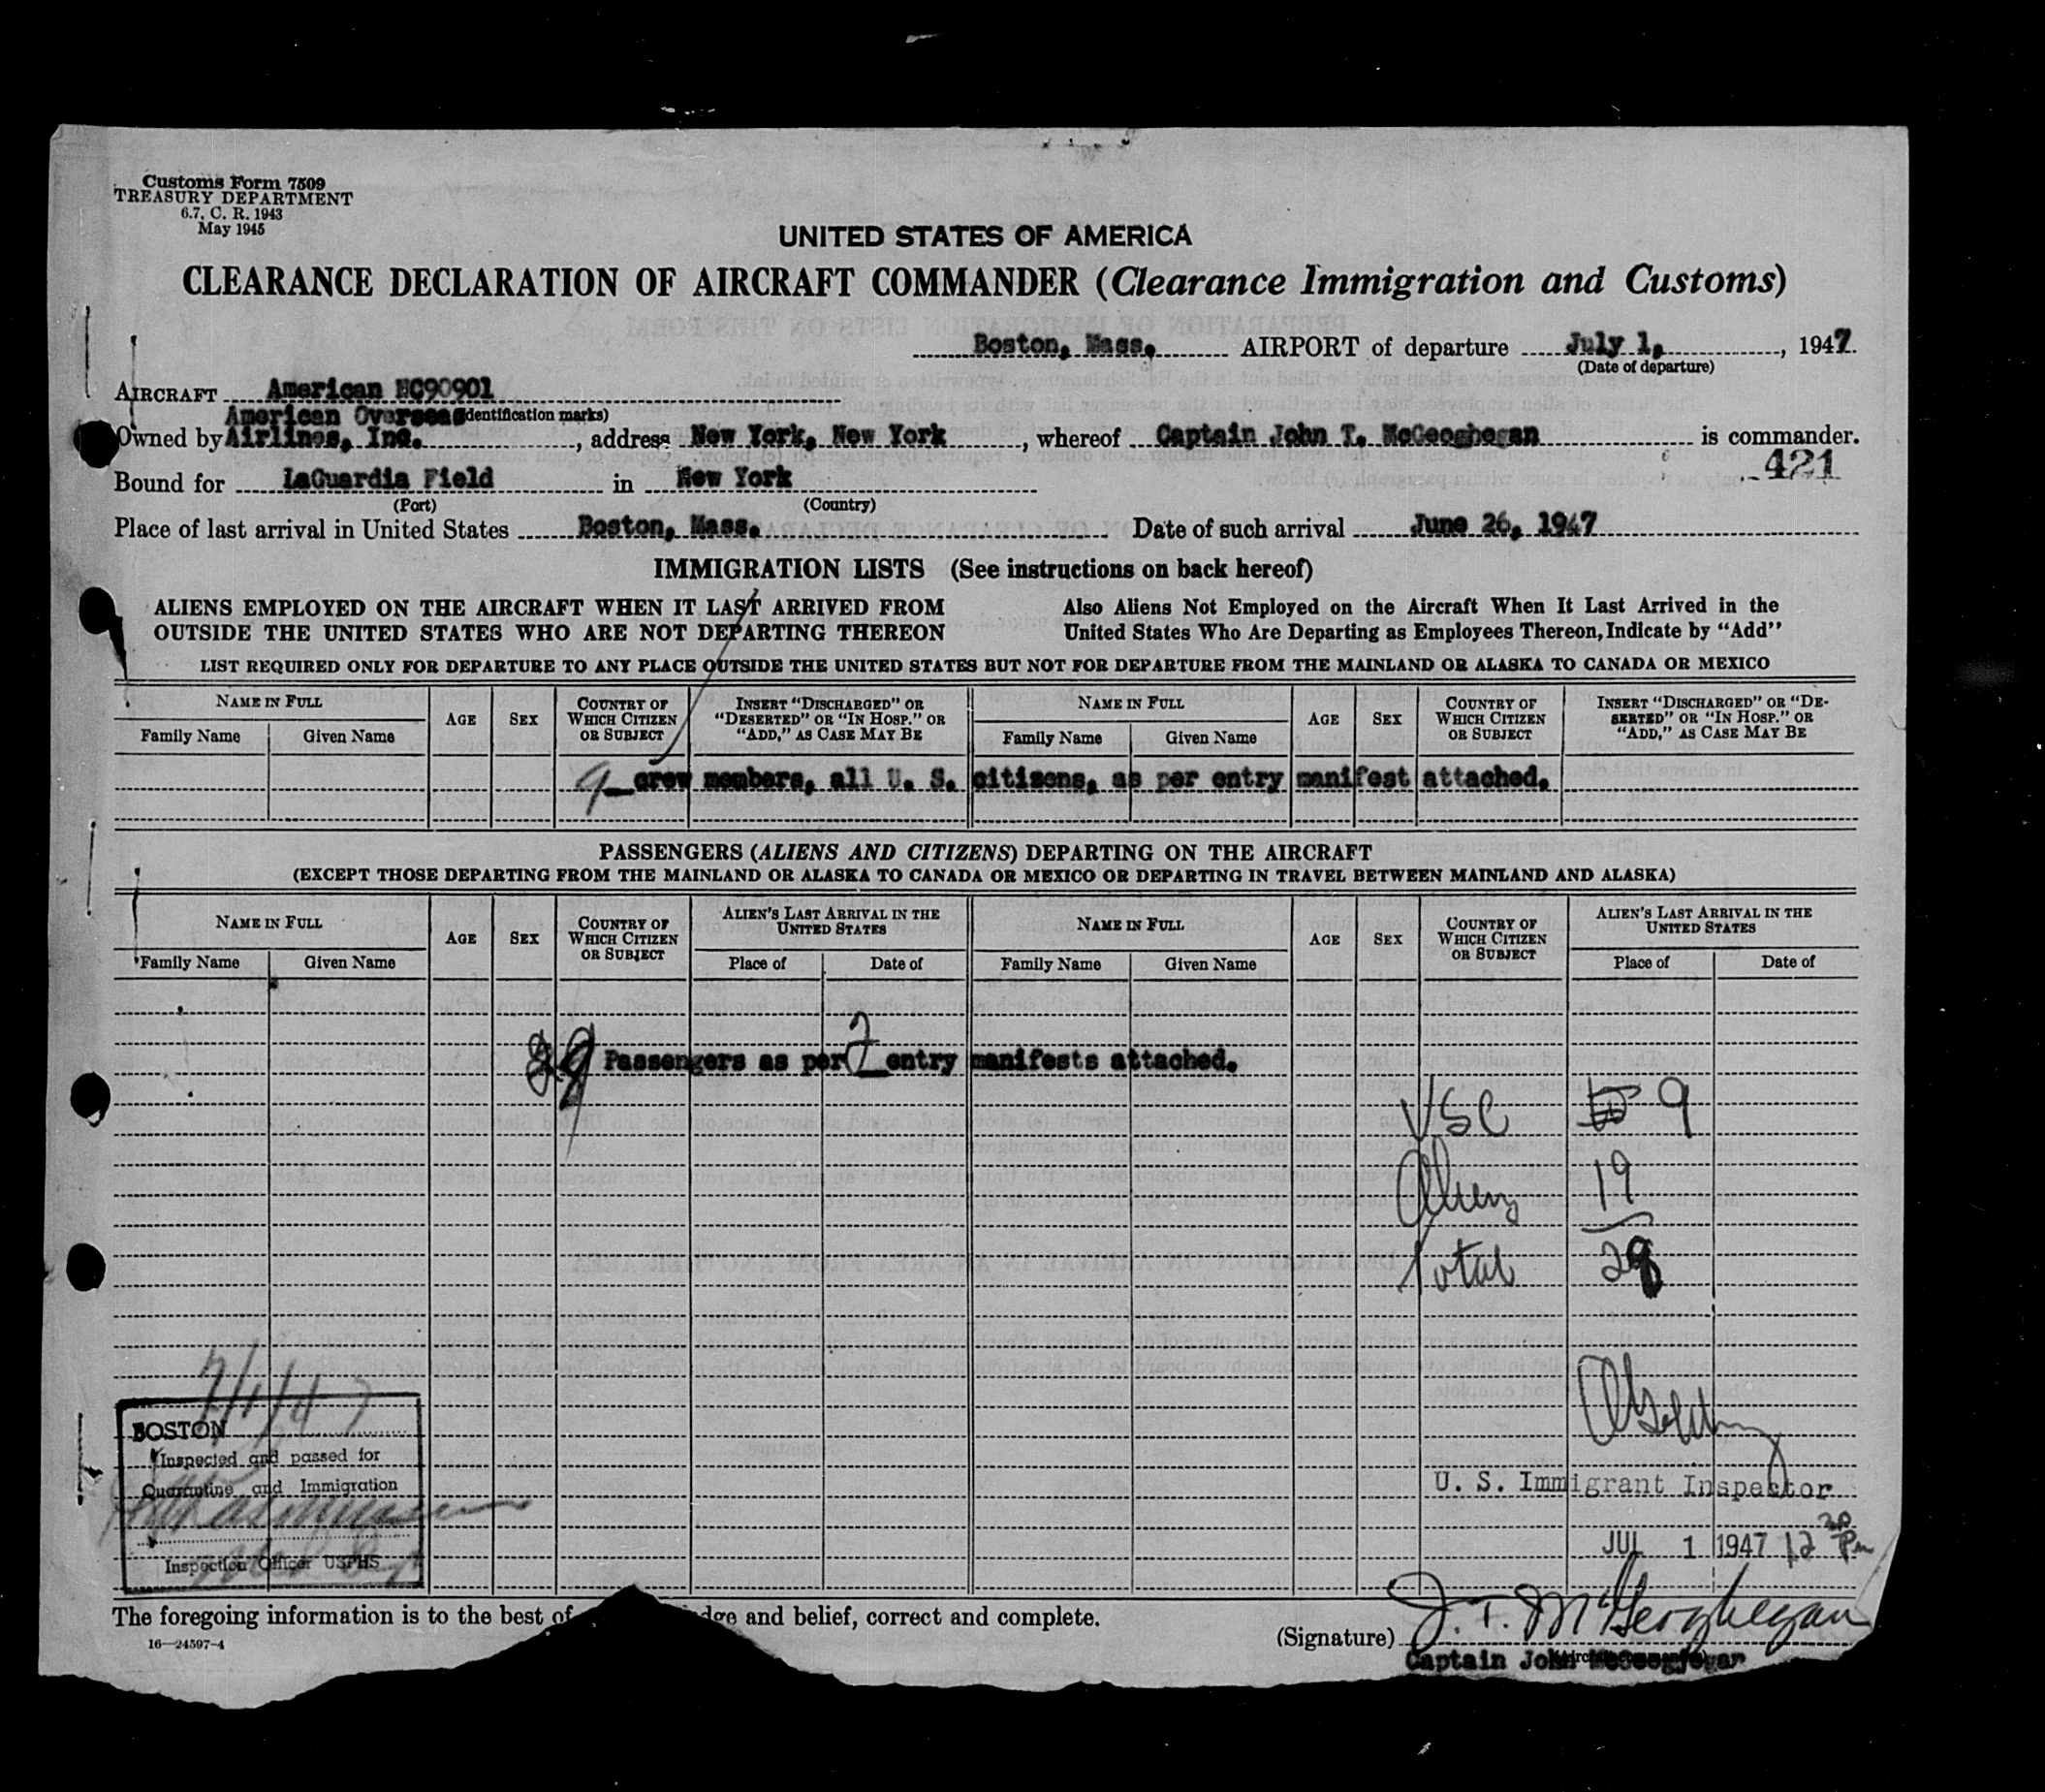 Customs Form 7509
TREASURY DEPARTMENT
6.7. C. R. 1943
May 1945
UNITED STATES OF AMERICA
CLEARANCE DECLARATION OF AIRCRAFT COMMANDER (Clearance Immigration and Customs)
Boston, Mass. AIRPORT of departure July 1, , 1947.
(Date of departure)
AIRCRAFT American NC90901
American Overseas (Identification marks)
Owned by Airlines, Inc. , address New York, New York , whereof Captain John T. McGeoghegan is commander.
421
Bound for LaGuardia Field in New York
(Port) (Country)
Place of last arrival in United States Boston, Mass. Date of such arrival June 26, 1947
IMMIGRATION LISTS (See instructions on back hereof)
ALIENS EMPLOYED ON THE AIRCRAFT WHEN IT LAST ARRIVED FROM Also Aliens Not Employed on the Aircraft When It Last Arrived in the
OUTSIDE THE UNITED STATES WHO ARE NOT DEPARTING THEREON United States Who Are Departing as Employees Thereon, Indicate by "Add"
LIST REQUIRED ONLY FOR DEPARTURE TO ANY PLACE OUTSIDE THE UNITED STATES BUT NOT FOR DEPARTURE FROM THE MAINLAND OR ALASKA TO CANADA OR MEXICO
NAME IN FULL AGE SEX COUNTRY OF WHICH CITIZEN OR SUBJECT INSERT "DISCHARGED" OR "DESERTED" OR "IN HOSP." OR "ADD," AS CASE MAY BE NAME IN FULL AGE SEX COUNTRY OF WHICH CITIZEN OR SUBJECT INSERT "DISCHARGED" OR "DESERTED" OR "IN HOSP." OR "ADD," AS CASE MAY BE
Family Name Given Name Family Name Given Name
9 crew members, all U. S. citizens, as per entry manifest attached.
PASSENGERS (ALIENS AND CITIZENS) DEPARTING ON THE AIRCRAFT
(EXCEPT THOSE DEPARTING FROM THE MAINLAND OR ALASKA TO CANADA OR MEXICO OR DEPARTING IN TRAVEL BETWEEN MAINLAND AND ALASKA)
NAME IN FULL AGE SEX COUNTRY OF WHICH CITIZEN OR SUBJECT ALIEN'S LAST ARRIVAL IN THE UNITED STATES NAME IN FULL AGE SEX COUNTRY OF WHICH CITIZEN OR SUBJECT ALIEN'S LAST ARRIVAL IN THE UNITED STATES
Family Name Given Name Place of Date of Family Name Given Name Place of Date of
Passengers as per 2 entry manifests attached.
USC 9
Aliens 19
Total 28
7/1/47
BOSTON
Inspected and passed for
Quarantine and Immigration
Inspection Officer USPHS
U. S. Immigrant Inspector
JUL 1 1947 12 30 Pm
The foregoing information is to the best of and belief, correct and complete.
16—24597-4
(Signature) J. T. McGeoghegan
Captain John McGeoghegan